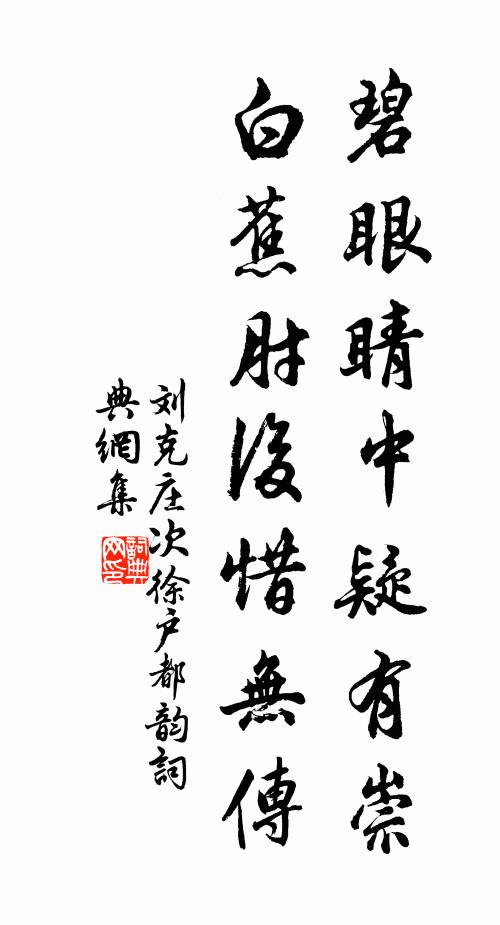 碧眼睛中疑有崇
白蕉肘後惜無傳
刘克庄次徐户都韵詞
典網集
詞典
网印